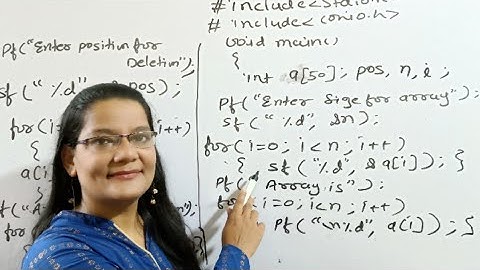 Pf("Enter position for
Deletion");
sf("%d", pos);
for(i= i++)
{
a[i]
}
pf("A n");
for( i++)
#include<stdio.h>
#include<conio.h>
void main()
{
int a[50]; pos, n, i;
pf("Enter Size for array");
sf("%d", &n);
for(i=0; i<n; i++)
{ sf("%d", &a[i]); }
pf("Array is");
for(i=0; i<n; i++)
pf("\n%d", a[i]); }